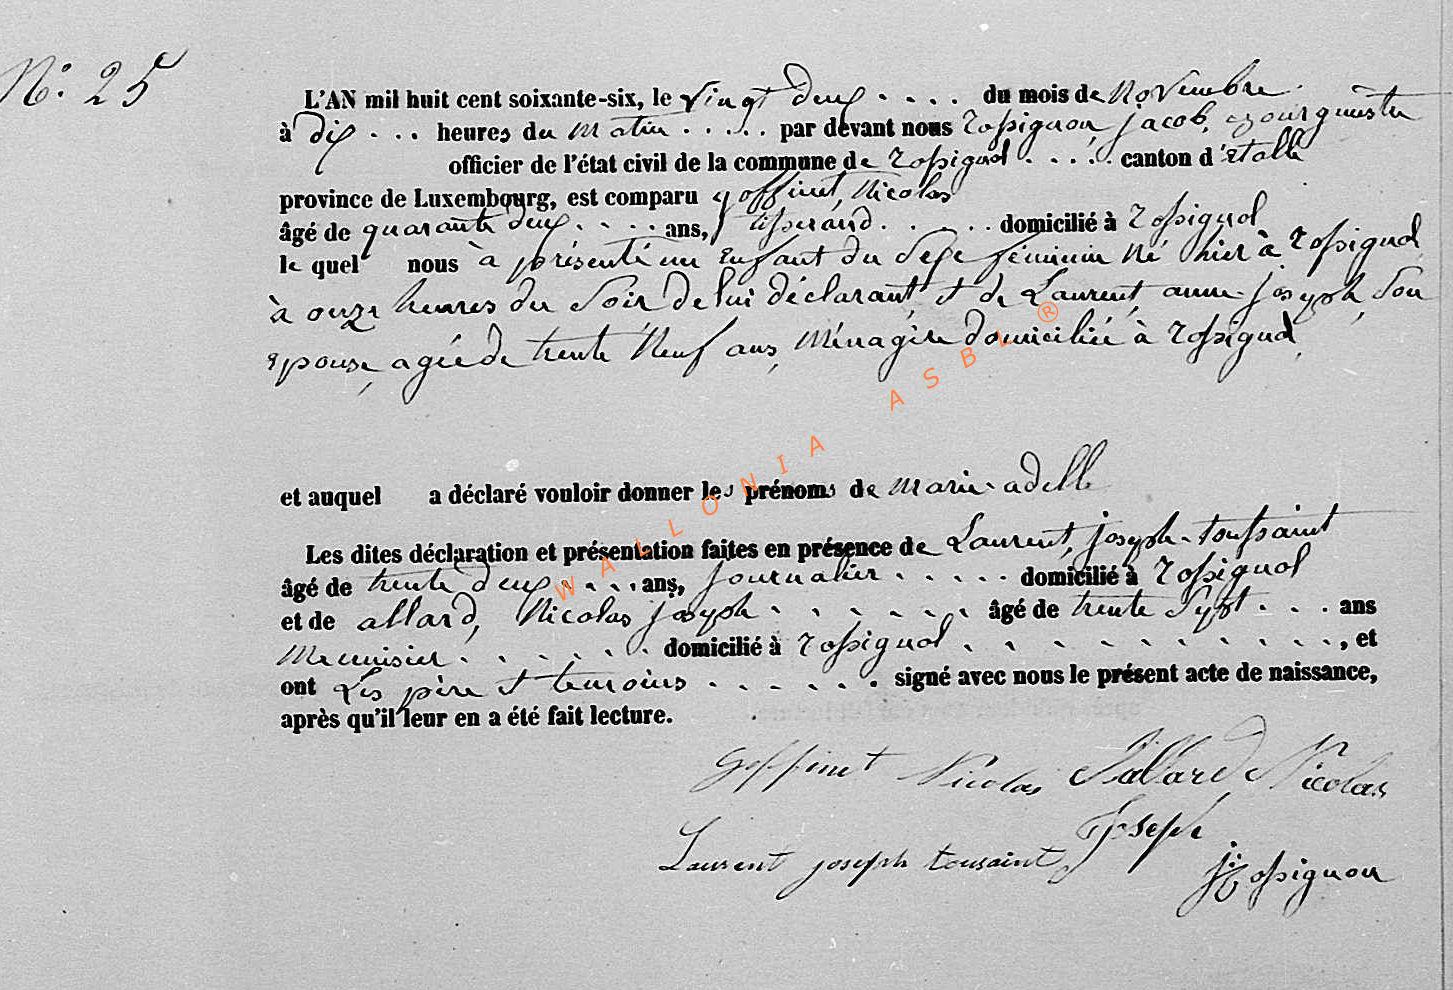 N.o 25
L'AN mil huit cent soixante-six, le vingt deux . . . . du mois de Novembre
à dix . . . heures du matin . . . . . par devant nous Rossignon, jacob, Bourgmestre
officier de l'état civil de la commune de Rossignol . . . . . canton d'Etalle
province de Luxembourg, est comparu goffinet, Nicolas
âgé de quarante deux . . . . ans, tisserand . . . . . . domicilié à Rossignol
le quel nous à présenté un Enfant du Sexe féminin Né hier à Rossignol
à onze heures du Soir de lui déclarant, et de Laurent, anne-joseph, Son
Epouse, agée de trente Neuf ans, Ménagère domiciliée à Rossignol,
et auquel a déclaré vouloir donner les prénoms de Marie-adelle
Les dites déclaration et présentation faites en présence de Laurent, joseph-toussaint
âgé de trente deux . . . . ans, journalier . . . . . domicilié à Rossignol
et de allard, Nicolas joseph . . . . . . . âgé de trente Sept . . . ans
Menuisier . . . . . . domicilié à Rossignol . . . . . . . . . . , et
ont Les père et temoins . . . . . . signé avec nous le présent acte de naissance,
après qu'il leur en a été fait lecture.
goffinet Nicolas Allard Nicolas
Joseph
Laurent joseph tousaint
J: Rossignon
WALLONIA ASBL ®